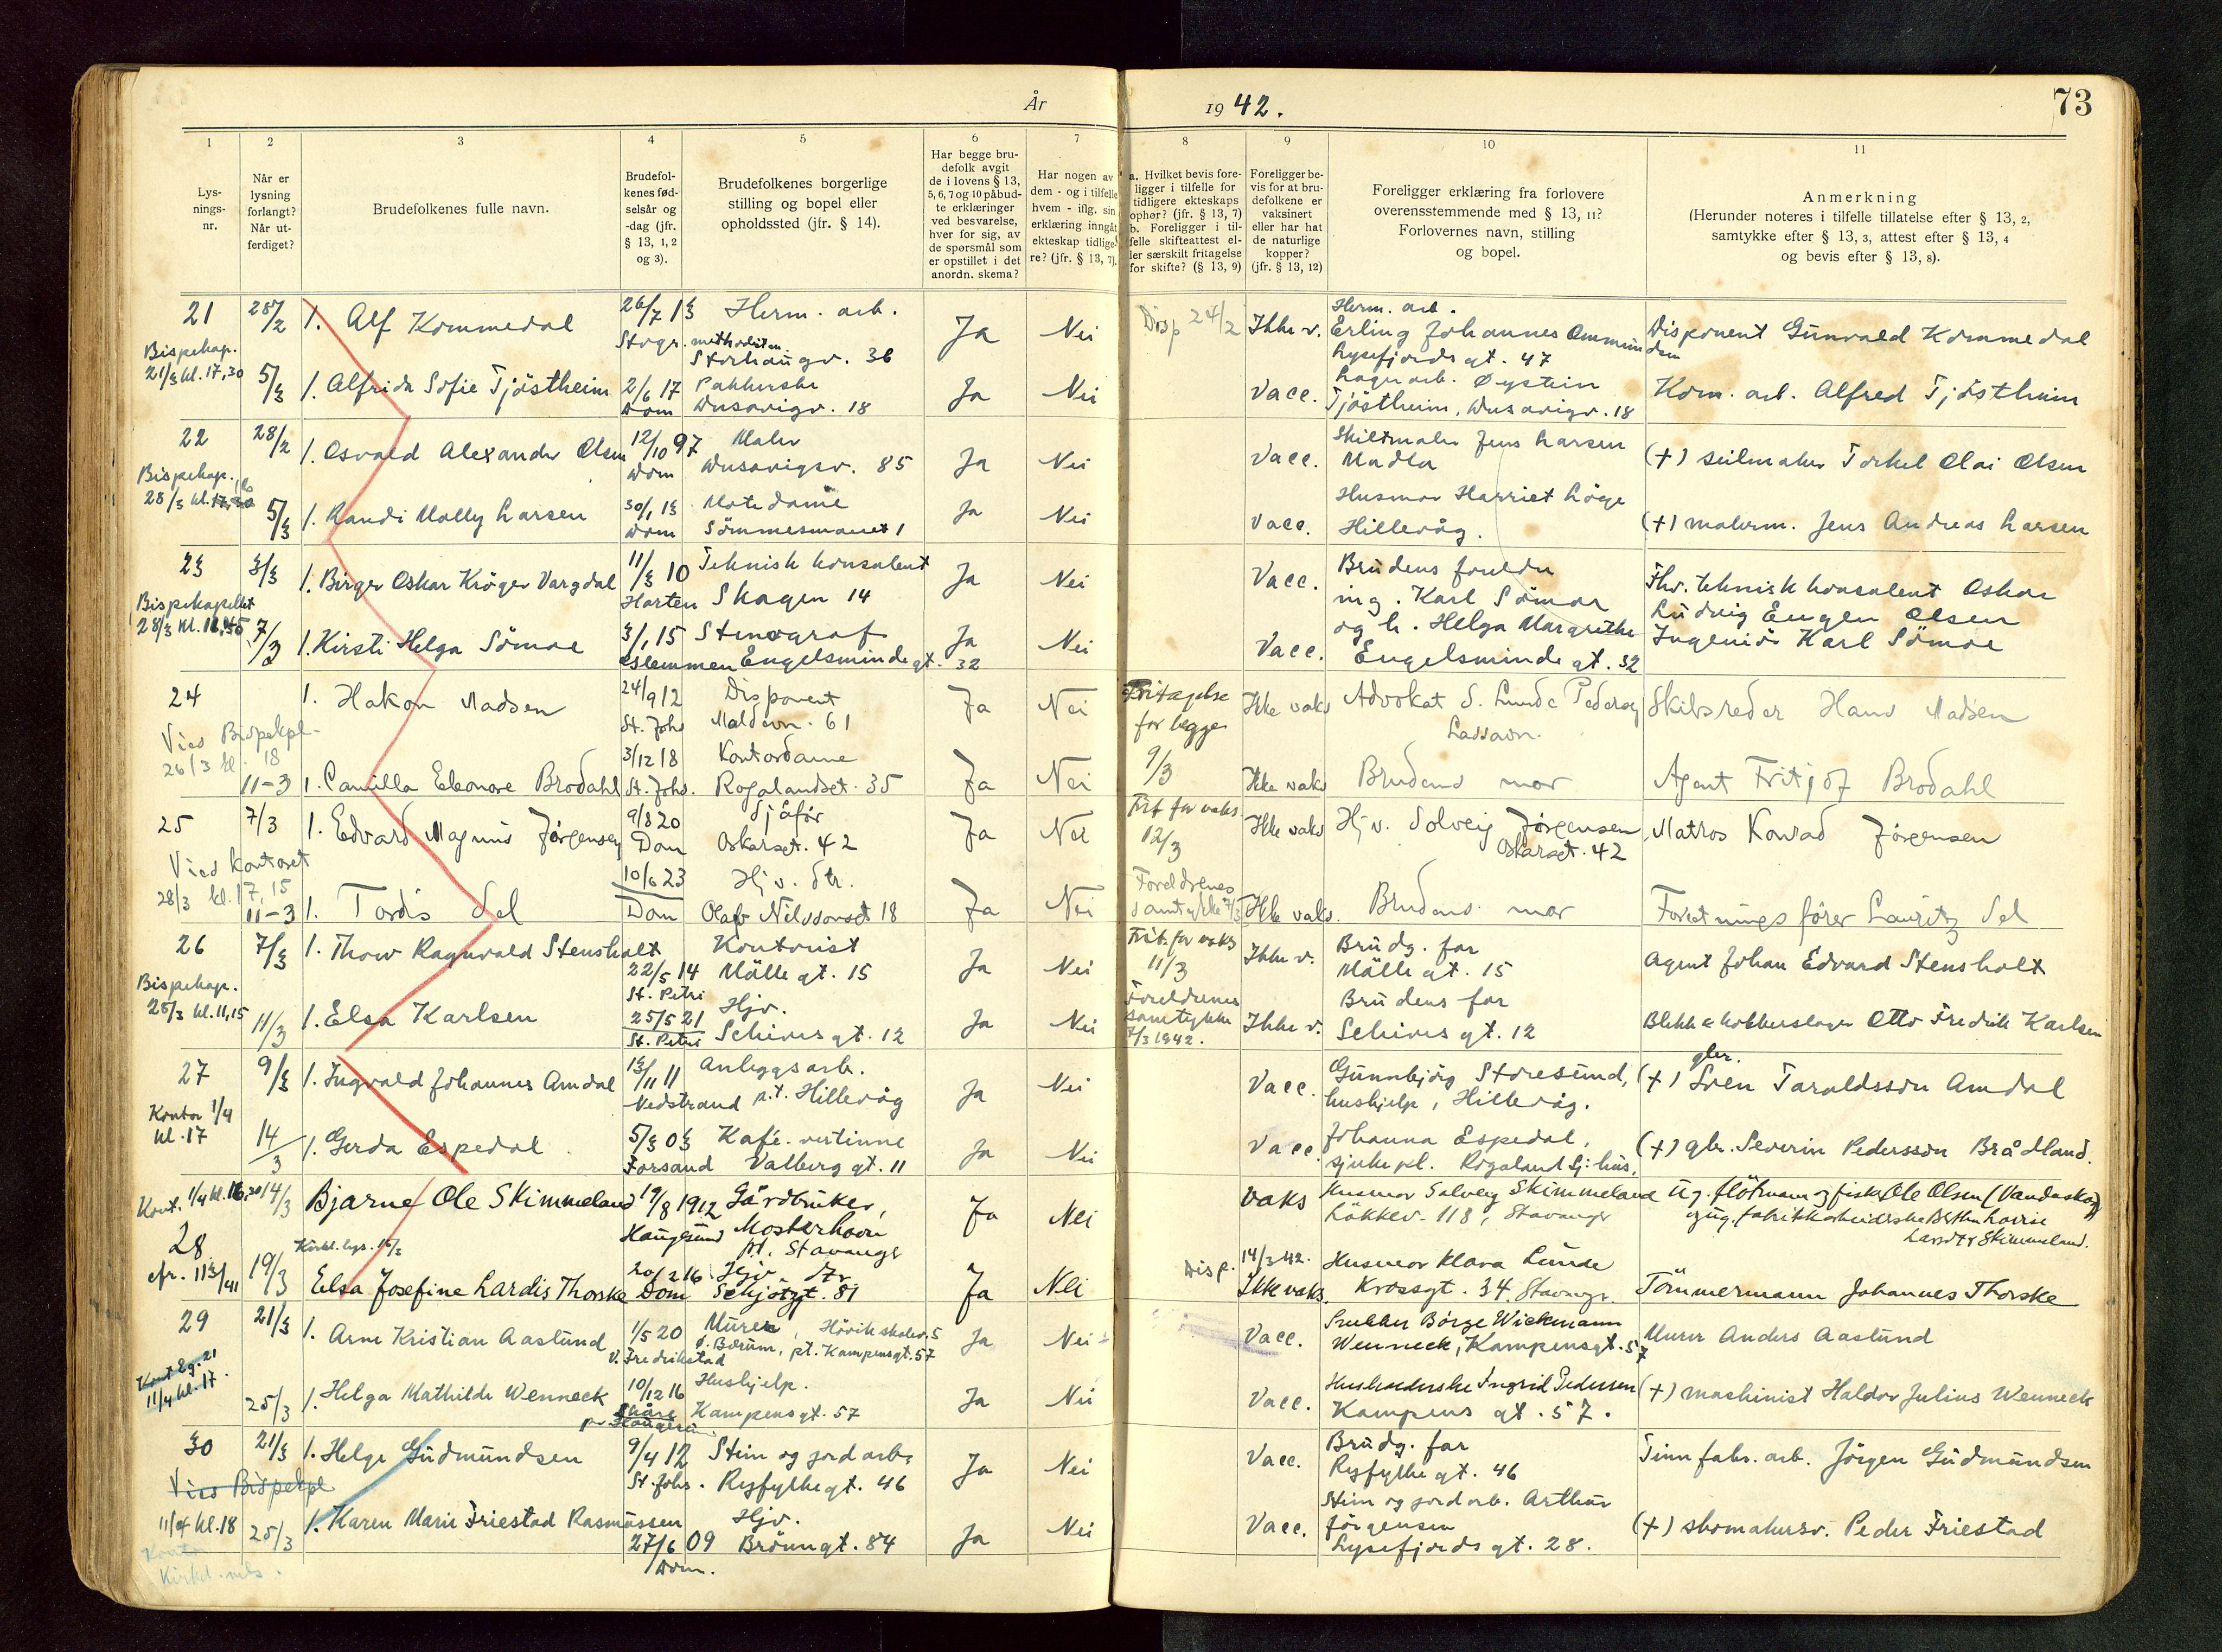 År 1942. 73
1 2 3 4 5 6 7 8 9 10 11
Lys-
nings-
nr.
Når er
lysning
forlangt?
Når ut-
ferdiget?
Brudefolkenes fulle navn.
Brudefol-
kenes fød-
selsår og
-dag (jfr.
§ 13, 1, 2
og 3).
Brudefolkenes borgerlige
stilling og bopel eller
opholdssted (jfr. § 14).
Har begge bru-
defolk avgit
de i lovens § 13,
5, 6, 7 og 10 påbud-
te erklæringer
ved besvarelse,
hver for sig, av
de spørsmål som
er opstillet i det
anordn. skema?
Har nogen av
dem - og i tilfelle
hvem - iflg. sin
erklæring inngåt
ekteskap tidlige-
re? (jfr. § 13, 7).
a. Hvilket bevis fore-
ligger i tilfelle for
tidligere ekteskaps
ophør? (jfr. § 13, 7)
b. Foreligger i til-
felle skifteattest el-
ler særskilt fritagelse
for skifte? (§ 13, 9)
Foreligger be-
vis for at bru-
defolkene er
vaksinert
eller har hat
de naturlige
kopper?
(jfr. § 13, 12)
Foreligger erklæring fra forlovere
overensstemmende med § 13, 11?
Forlovernes navn, stilling
og bopel.
Anmerkning
(Herunder noteres i tilfelle tillatelse efter § 13, 2,
samtykke efter § 13, 3, attest efter § 13, 4
og bevis efter § 13, 8).
21 28/2 1. Alf Kommedal 26/7 13 Herm. arb. Ja Nei Disp 24/2 Ikke v. Herm. arb.
Stvgr. methodisten Storhaugv. 36 Erling Johannes Ommundsen Disponent Gunvald Kommedal
Bispekap. Lysefjords gt. 47
21/3 kl. 17,30 5/3 1. Alfrida Sofie Tjöstheim 2/6 17 Pakkerske Ja Nei Vacc. Lagerarb. Øystein Kom. arb. Alfred Tjöstheim
Dom Dusavigv. 18 Tjöstheim, Dusavigv. 18
22 28/2 1. Osvald Alexander Olsen 12/10 97 Maler Ja Nei Vacc. Skiltmaler Jens Larsen (+) seilmaker Torkel Olai Olsen
Bispekap. Dom Dusavigsv. 85 Madla
28/3 5/3 1. Randi Molly Larsen 30/1 13 Motedame Ja Nei Vacc. Husmor Harriet Löge (+) malerm. Jens Andreas Larsen
Dom Sömmesmauet 1 Hillevåg.
23 3/3 1. Birger Oskar Kröger Vargdal 11/3 10 Teknisk konsulent Ja Nei Vacc. Brudens foreldre Fhv. teknisk konsulent Oskar
Bispekapellet Horten Skagen 14 ing. Karl Sömoe Ludvig Eugen Olsen
28/3 kl. 7/3 1. Kirsti Helga Sömoe 3/1 15 Stenograf Ja Nei Vacc. og h. Helga Margrethe Ingeniör Karl Sömoe
Engelsminde gt. 32 Engelsminde gt. 32
24 1. Hakon Madsen 24/9 12 Disponent Ja Nei Fritagelse Ikke vaks Advokat S. Lunde Pedersen Skibsreder Hans Madsen
St. Johs 61 for begge
Vies Bispekpl. 9/3
26/3 kl. 18 11-3 1. Camilla Eleonore Brodahl 3/12 18 Kontordame Ja Nei Ikke vaks Brudens mor Agent Fritjof Brodahl
St. Johs. Rogalandsgt. 35
25 7/3 1. Edvard Magnus Jørgensen 9/8 20 Sjåfør Ja Nei Frit for vaks. Ikke vaks Hjv. Solveig Jørgensen Matros Konrad Jørgensen
Dom Oskarsgt. 42 12/3 Oskarsgt. 42
Vies kontoret
28/3 kl. 17,15 11-3 1. Tordis Sel 10/6 23 Hjv. dtr. Ja Nei Foreldrenes samtykke 7/3 Ikke vaks. Brudens mor Forretningsfører Lauritz Sel
Dom Olafv Nilssonsgt 18
26 7/3 1. Thorv Ragnvald Stensholt 22/5 14 Kontorist Ja Nei Frit. for vaks Ikke v. Brudg. far Agent Johan Edvard Stensholt
St. Petri Mölle gt. 15 11/3 Mölle gt. 15
Bispekap.
25/3 kl. 11,15 11/3 1. Elsa Karlsen 25/5 21 Hjv. Ja Nei Foreldrenes samtykke 7/3 1942. Ikke v. Brudens far Blikk & kobberslager Otto Fredrik Karlsen
St. Petri Schives gt. 12 Schives gt. 12
27 9/3 1. Ingvald Johannes Amdal 13/11 11 Anleggsarb. Ja Nei Vacc. Gunnbjörg Storesund, (+) gbr. Sven Taraldsson Amdal
Nedstrand p.t. Hillevåg hushjelp, Hillevåg.
Kontor 1/4
kl. 17 14/3 1. Gerda Espedal 5/3 03 Kafé-vertinne Ja Nei Vacc. Johanna Espedal, (+) gbr. Severin Pedersson Brådland.
Forsand Valberg gt. 11 sjukepl. Rogaland Sj:hus.
Kont. 1/4 kl. 16,30 14/3 Bjarne Ole Skimmeland 19/8 1912 Gårdbruker, Ja Nei Vaks Husmor Solveig Skimmeland Ug. flötmann og fisker Ole Olsen (Vandaskog)
Haugesund Mosterhavn Lökkev. 118, Stavanger og ug. fabrikkarbeiderske Berthe Lovise
pt. Stavanger Skimmeland.
28 Kirkl. lys. 15/3
cfr. 113/41 19/3 Elsa Josefine Lardis Thorske 20/2 16 Hjv. dtr. Ja Nei Disp. 14/3 42. Husmor Klara Lunde Tömmermann Johannes Thorske
Dom Schjötzgt. 81 Ikke vaks. Krossgt. 34. Stavanger.
29 21/3 1. Arne Kristian Aaslund 1/5 20 Murer, Hövikskolev. 5 Ja Nei Vacc. Snekker Börge Wickmann Murer Anders Aaslund
V. Fredrikstad ö. Bærum, pt. Kampensgt. 57 Wenneck, Kampensgt. 57
11/4 kl. 17.
25/3 1. Helga Mathilde Wenneck 10/12 16 Hushjelp. Ja Nei Vacc. Husholderske Ingrid Pedersen (+) maskinist Haldor Julius Wenneck
Skåre Kampensgt. 57 Kampens gt. 57.
30 21/3 1. Helge Gudmundsen 9/4 12 Stein og jord arb. Ja Nei Vacc. Brudg. far Tinnfabr. arb. Jörgen Gudmundsen
St. Johs. Ryfylkegt. 46 Ryfylke gt. 46
Vies Bispekpl
11/4 kl. 18 25/3 1. Karen Marie Friestad Rasmussen 27/6 09 Hjv. Ja Nei Vacc. Stein og jord arb. Arthur Jörgensen (+) skomakersv. Peder Friestad
Dom. Brönngt. 84 Lysefjords gt. 28.
Kontor
Kirkel. vels.